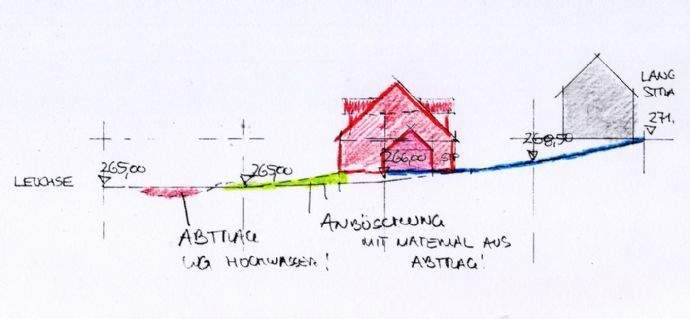 LANG
271.
268,50
265,00
265,00
266,00
LEUCHSE
ANBÖSCHUNG
MIT MATERIAL AUS
ABTRAG!
ABTRAG
WG HOCHWASSER!